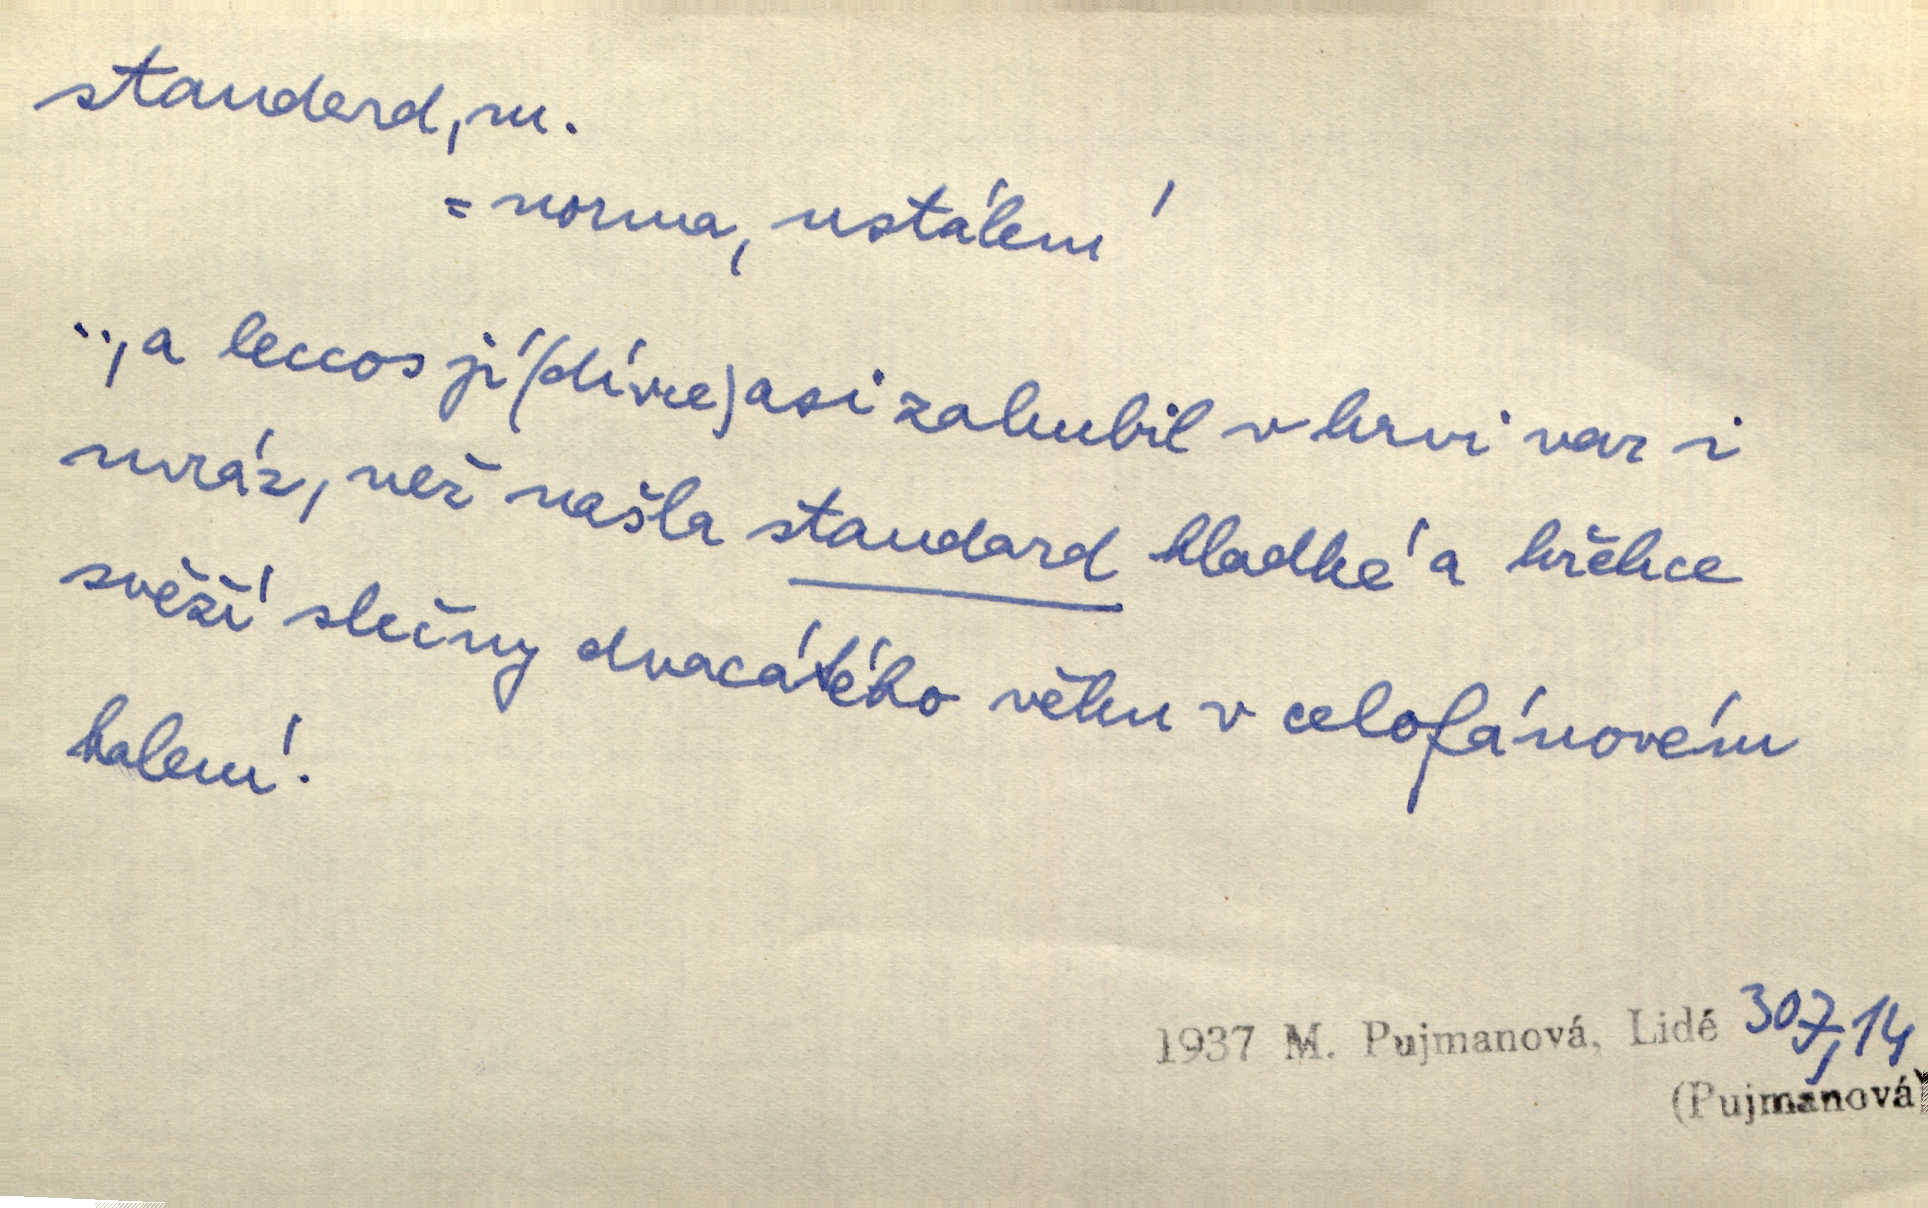 standard, m.
= norma, ustálení
.., a leccos jí (dívce) asi zahubil v krvi var i
mráz, než našla standard hladké a křehce
svěží slečny dvacátého věku v celofánovém
balení.
1937 M. Pujmanová, Lidé 307,14
(Pujmanová)